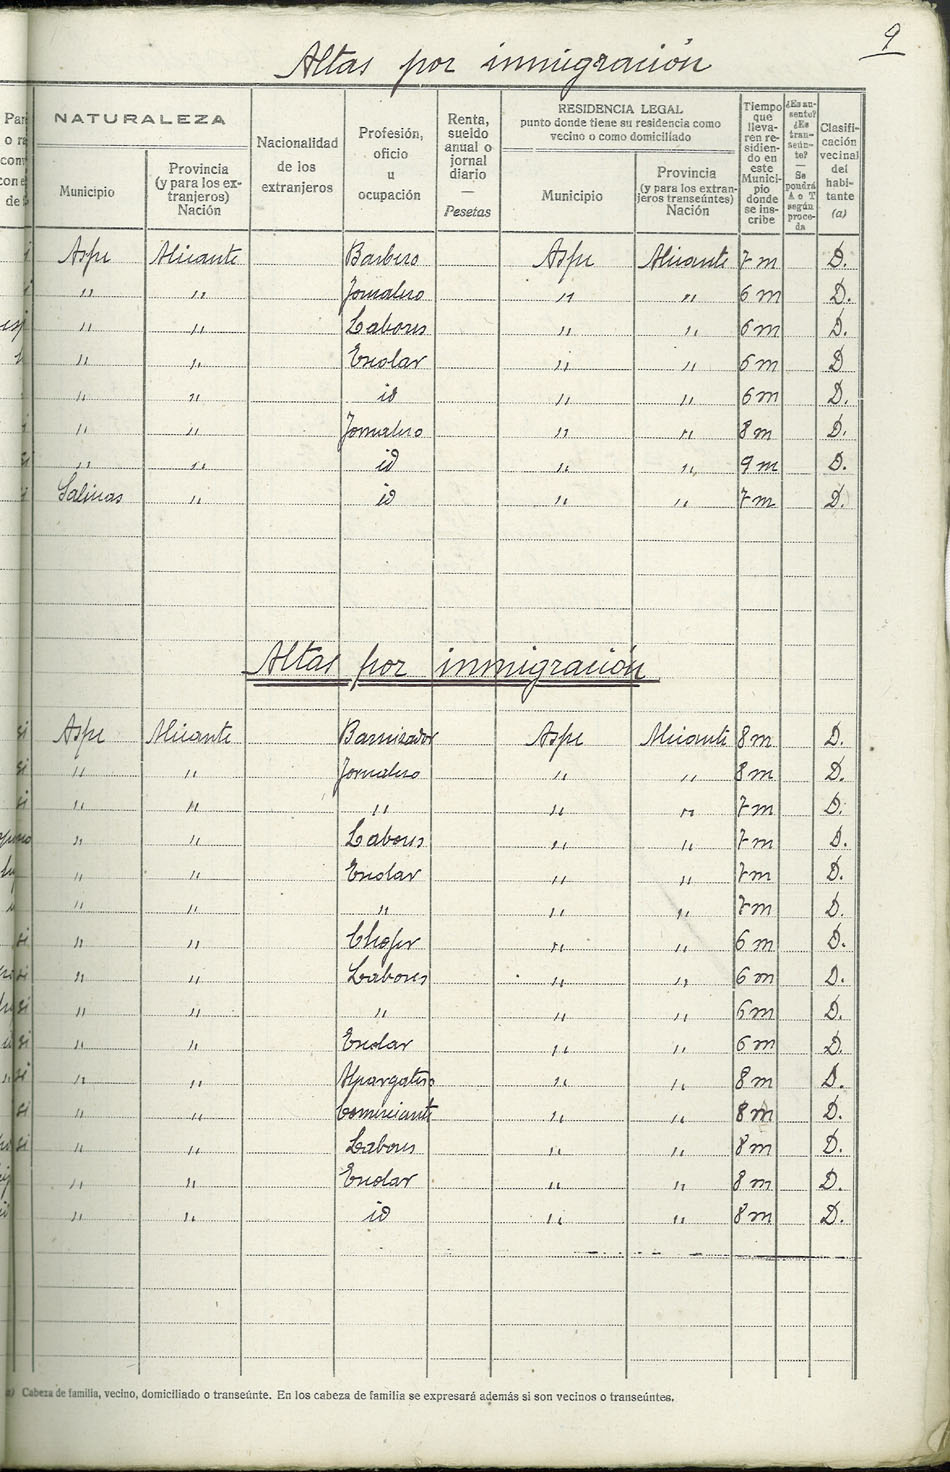 9
Altas por inmigración
NATURALEZA
Municipio
Provincia (y para los extranjeros) Nación
Nacionalidad de los extranjeros
Profesión, oficio u ocupación
Renta, sueldo anual o jornal diario — Pesetas
RESIDENCIA LEGAL
punto donde tiene su residencia como vecino o como domiciliado
Municipio
Provincia (y para los extranjeros transeúntes) Nación
Tiempo que llevaren residiendo en este Municipio donde se inscribe
¿Es ausente? ¿Es transeúnte? — Se pondrá A o T según proceda
Clasificación vecinal del habitante (a)
Aspe Alicante Barbero Aspe Alicante 7 m D.
" " Jornalero " " 6 m D.
" " Labores " " 6 m D.
" " Escolar " " 6 m D
" " id " " 6 m D.
" " Jornalero " " 8 m D.
" " id " " 9 m D.
Salinas " id " " 7 m D.
Altas por inmigración
si Aspe Alicante Barnizador Aspe Alicante 8 m D.
si " " Jornalero " " 8 m D.
si " " " " " 7 m D.
" " Labores " " 7 m D.
" " Escolar " " 7 m D.
" " " " " 7 m D.
si " " Chofer " " 6 m D.
si " " Labores " " 6 m D.
si " " " " " 6 m D.
si " " Escolar " " 6 m D.
si " " Alpargatero " " 8 m D.
si " " Comerciante " " 8 m D.
si " " Labores " " 8 m D.
" " Escolar " " 8 m D.
" " id " " 8 m D.
Cabeza de familia, vecino, domiciliado o transeúnte. En los cabeza de familia se expresará además si son vecinos o transeúntes.